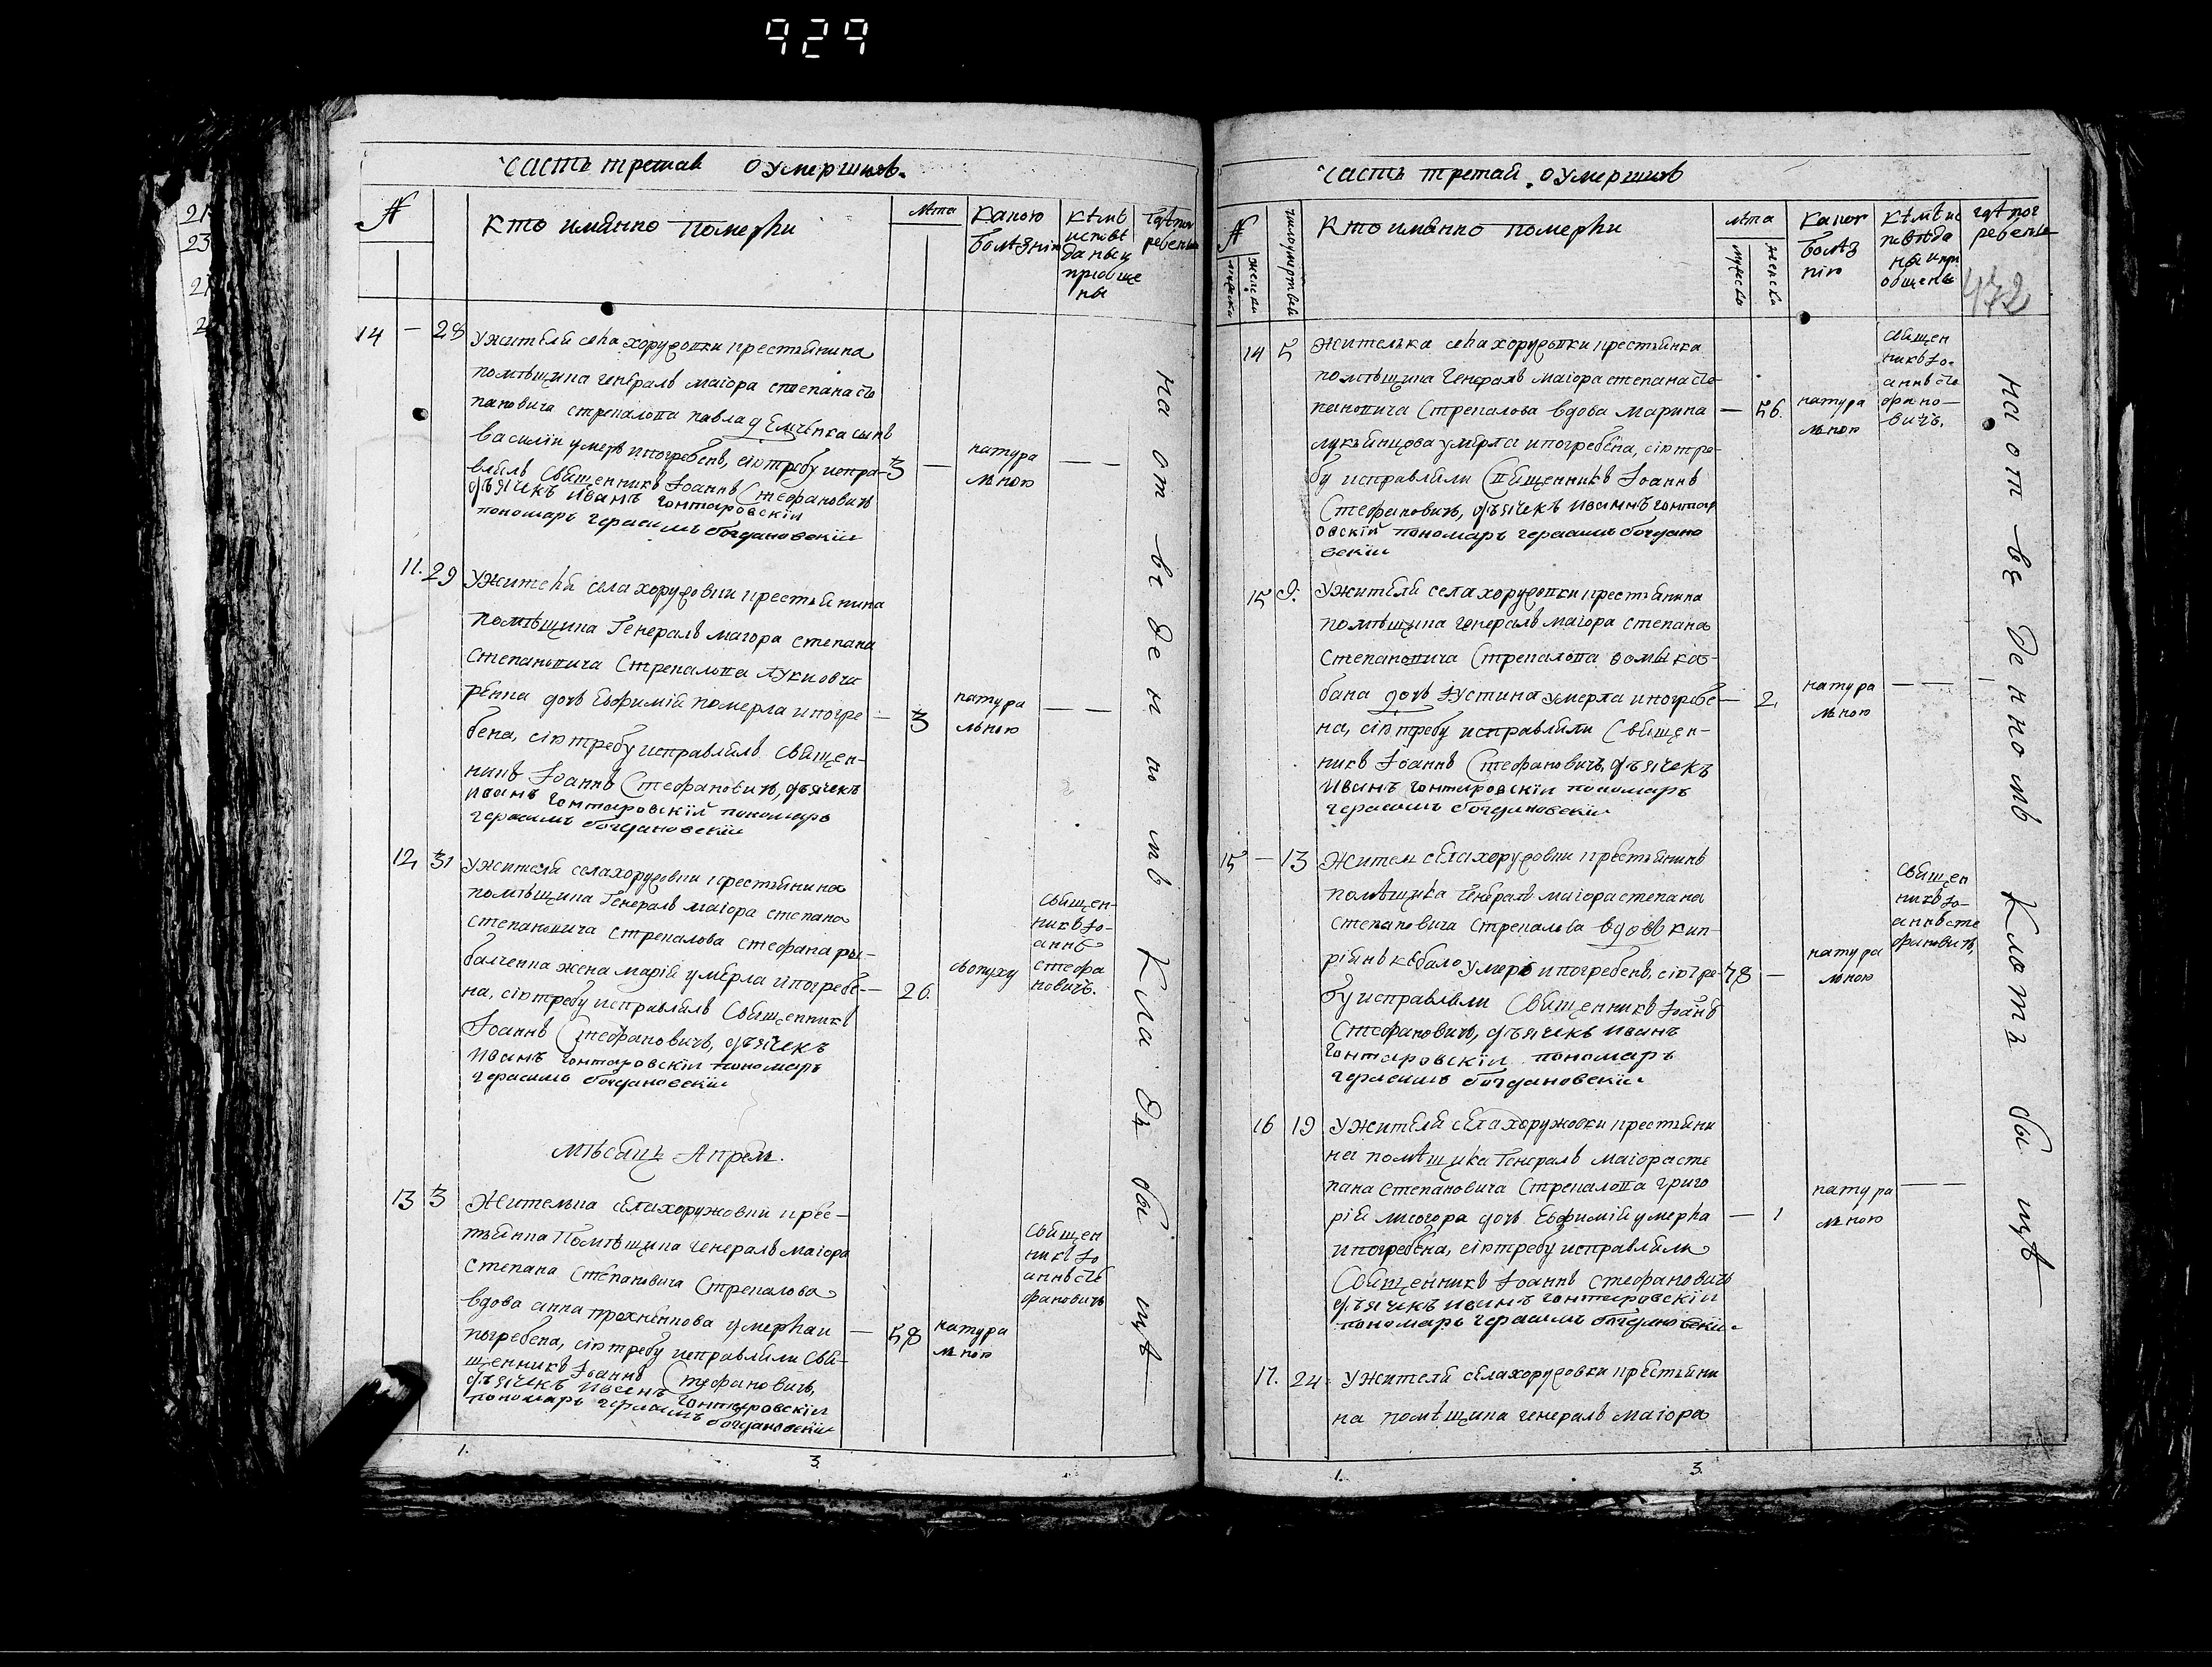 929
часть третая о умершихъ.
№
кто имянно померли
лѣта
какою болѣзнію
кѣмъ исповѣданы и приобщены
гдѣ погребены
14 — 28 у жителя села хоружовки крестьянина
помѣщика генералъ маіора степана сте
пановича стрекалова павла демченка сынъ
василій умеръ и погребенъ, сію требу испра-
влялъ священникъ Іоаннъ Стефановичъ
дьячекъ иванъ гонтаровскій
пономарь герасимъ богдановскій
3 —
натура
лною
— —
11. 29 у жителя села хоружовки крестьянина
помѣщика Генералъ маіора степана
степановича Стрекалова
дочь Евфимія померла и погре
бена, сію требу исправлялъ священ-
никъ Іоаннъ Стефановичъ, дьячекъ
иванъ гонтаровскій пономарь
герасимъ богдановскій
— 3
натура
лною
— —
12 31 у жителя села хоружовки крестьянина
помѣщика Генералъ маіора степана
степановича стрекалова стефана ры-
балченка жена марія умерла и погребе-
на, сію требу исправлялъ Священникъ
Іоаннъ Стефановичъ, дьячекъ
иванъ гонтаровскій пономарь
герасимъ богдановскій
— 26.
священ-
никъ Іо-
аннъ
стефа
новичъ.
мѣсяцъ Апрель.
13 3 Жителька села хоружовки крес-
тьянка Помѣщика генералъ маіора
степана Степановича Стрекалова
вдова анна умерла и
погребена, сію требу исправляли свя-
щенникъ Іоаннъ Стефановичъ,
дьячекъ иванъ гонтаровскій
пономарь герасимъ богдановскій
— 58
натура
лною
Священ
никъ Іо
аннъ сте
фановичъ
на отведенномъ кладбищѣ
1. 3.
часть третая о умершихъ
№
мужеска
женска
число умертвія
кто имянно померли
лѣта
мужеска
женска
какою
болѣз
нію
кѣмъ ис
повѣда
ны и при
общены
гдѣ пог
ребены
472
14 5 Жителька села хоружовки крестьянка
помѣщика Генералъ маіора степана сте-
пановича Стрекалова вдова марина
умерла и погребена, сію тре-
бу исправляли Священникъ Іоаннъ
Стефановичъ, дьячекъ иванъ гонтар
овскій пономарь герасимъ богдано
вскій
— 56.
натура
лною
священ
никъ Іо-
аннъ сте
фано-
вичъ.
15 9. у жителя села хоружовки крестьянина
помѣщика генералъ маіора степана
Степановича Стрекалова фомы ка-
бана дочь Іустина умерла и погребе-
на, сію требу исправляли Священ-
никъ Іоаннъ Стефановичъ, дьячекъ
иванъ гонтаровскій пономарь
герасимъ богдановскій
— 2
натура
лною
— —
15 — 13 Житель села хоружовки крестьянинъ
помѣщика Генералъ маіора степана
степановича Стрекалова вдовъ кип-
ріянъ умеръ и погребенъ, сію тре-
бу исправляли Священникъ Іоаннъ
Стефановичъ, дьячекъ иванъ
гонтаровскій пономарь
герасимъ богдановскій
78 —
натура
лною
Священ
никъ Іо-
аннъ сте
фановичъ,
16 19 у жителя села хоружовки крестьяни
на помѣщика Генералъ маіора сте
пана степановича Стрекалова григо
рія лисогора дочь Евфимія умерла
и погребена, сію требу исправляли
Священникъ Іоаннъ стефановичъ
дьячекъ иванъ гонтаровскій
пономарь герасимъ богдановскій
— 1
натура
лною
— —
17. 24 у жителя села хоружовки крестьяни
на помѣщика генералъ маіора
на отведенномъ кладбищѣ
1. 3.